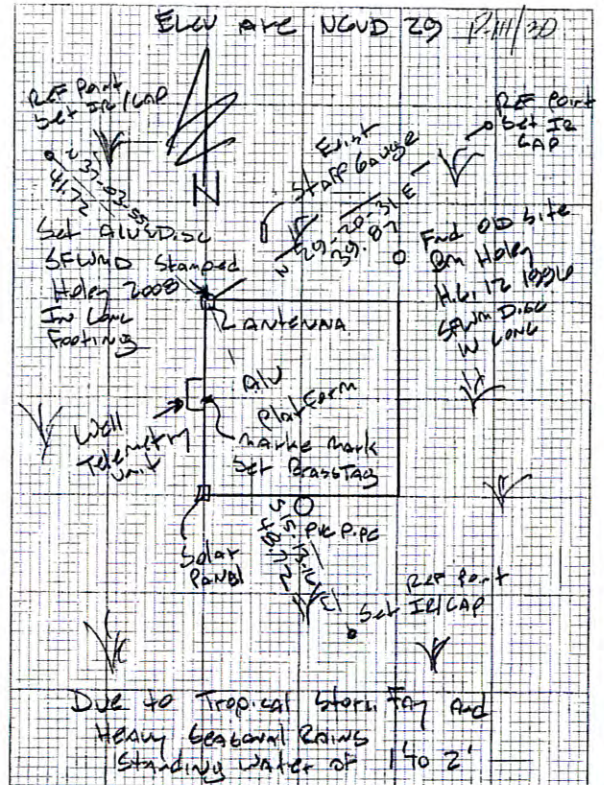 Elev Are NGVD 29 P.111/30
Ref Point
Set IR/CAP
N 37-03-55
41.72
Exist
Staff Gauge
Ref Point
Set IR
CAP
N 29-20-31 E
39.87
Set Alum Disc
SFWMD Stamped
Holey 2008
In Conc
Footing
Fnd Old Site
Bm Holey
1996
SFWM Disc
In Conc
ANTENNA
Alu
Platform
Well
Telemetry
Unit
Mark
Set Brass Tag
Solar
Panel
PVC Pipe
48.72
Ref Point
Set IR/CAP
Due to Tropical Storm Fay And
Heavy Seasonal Rains
Standing Water of 1' to 2'